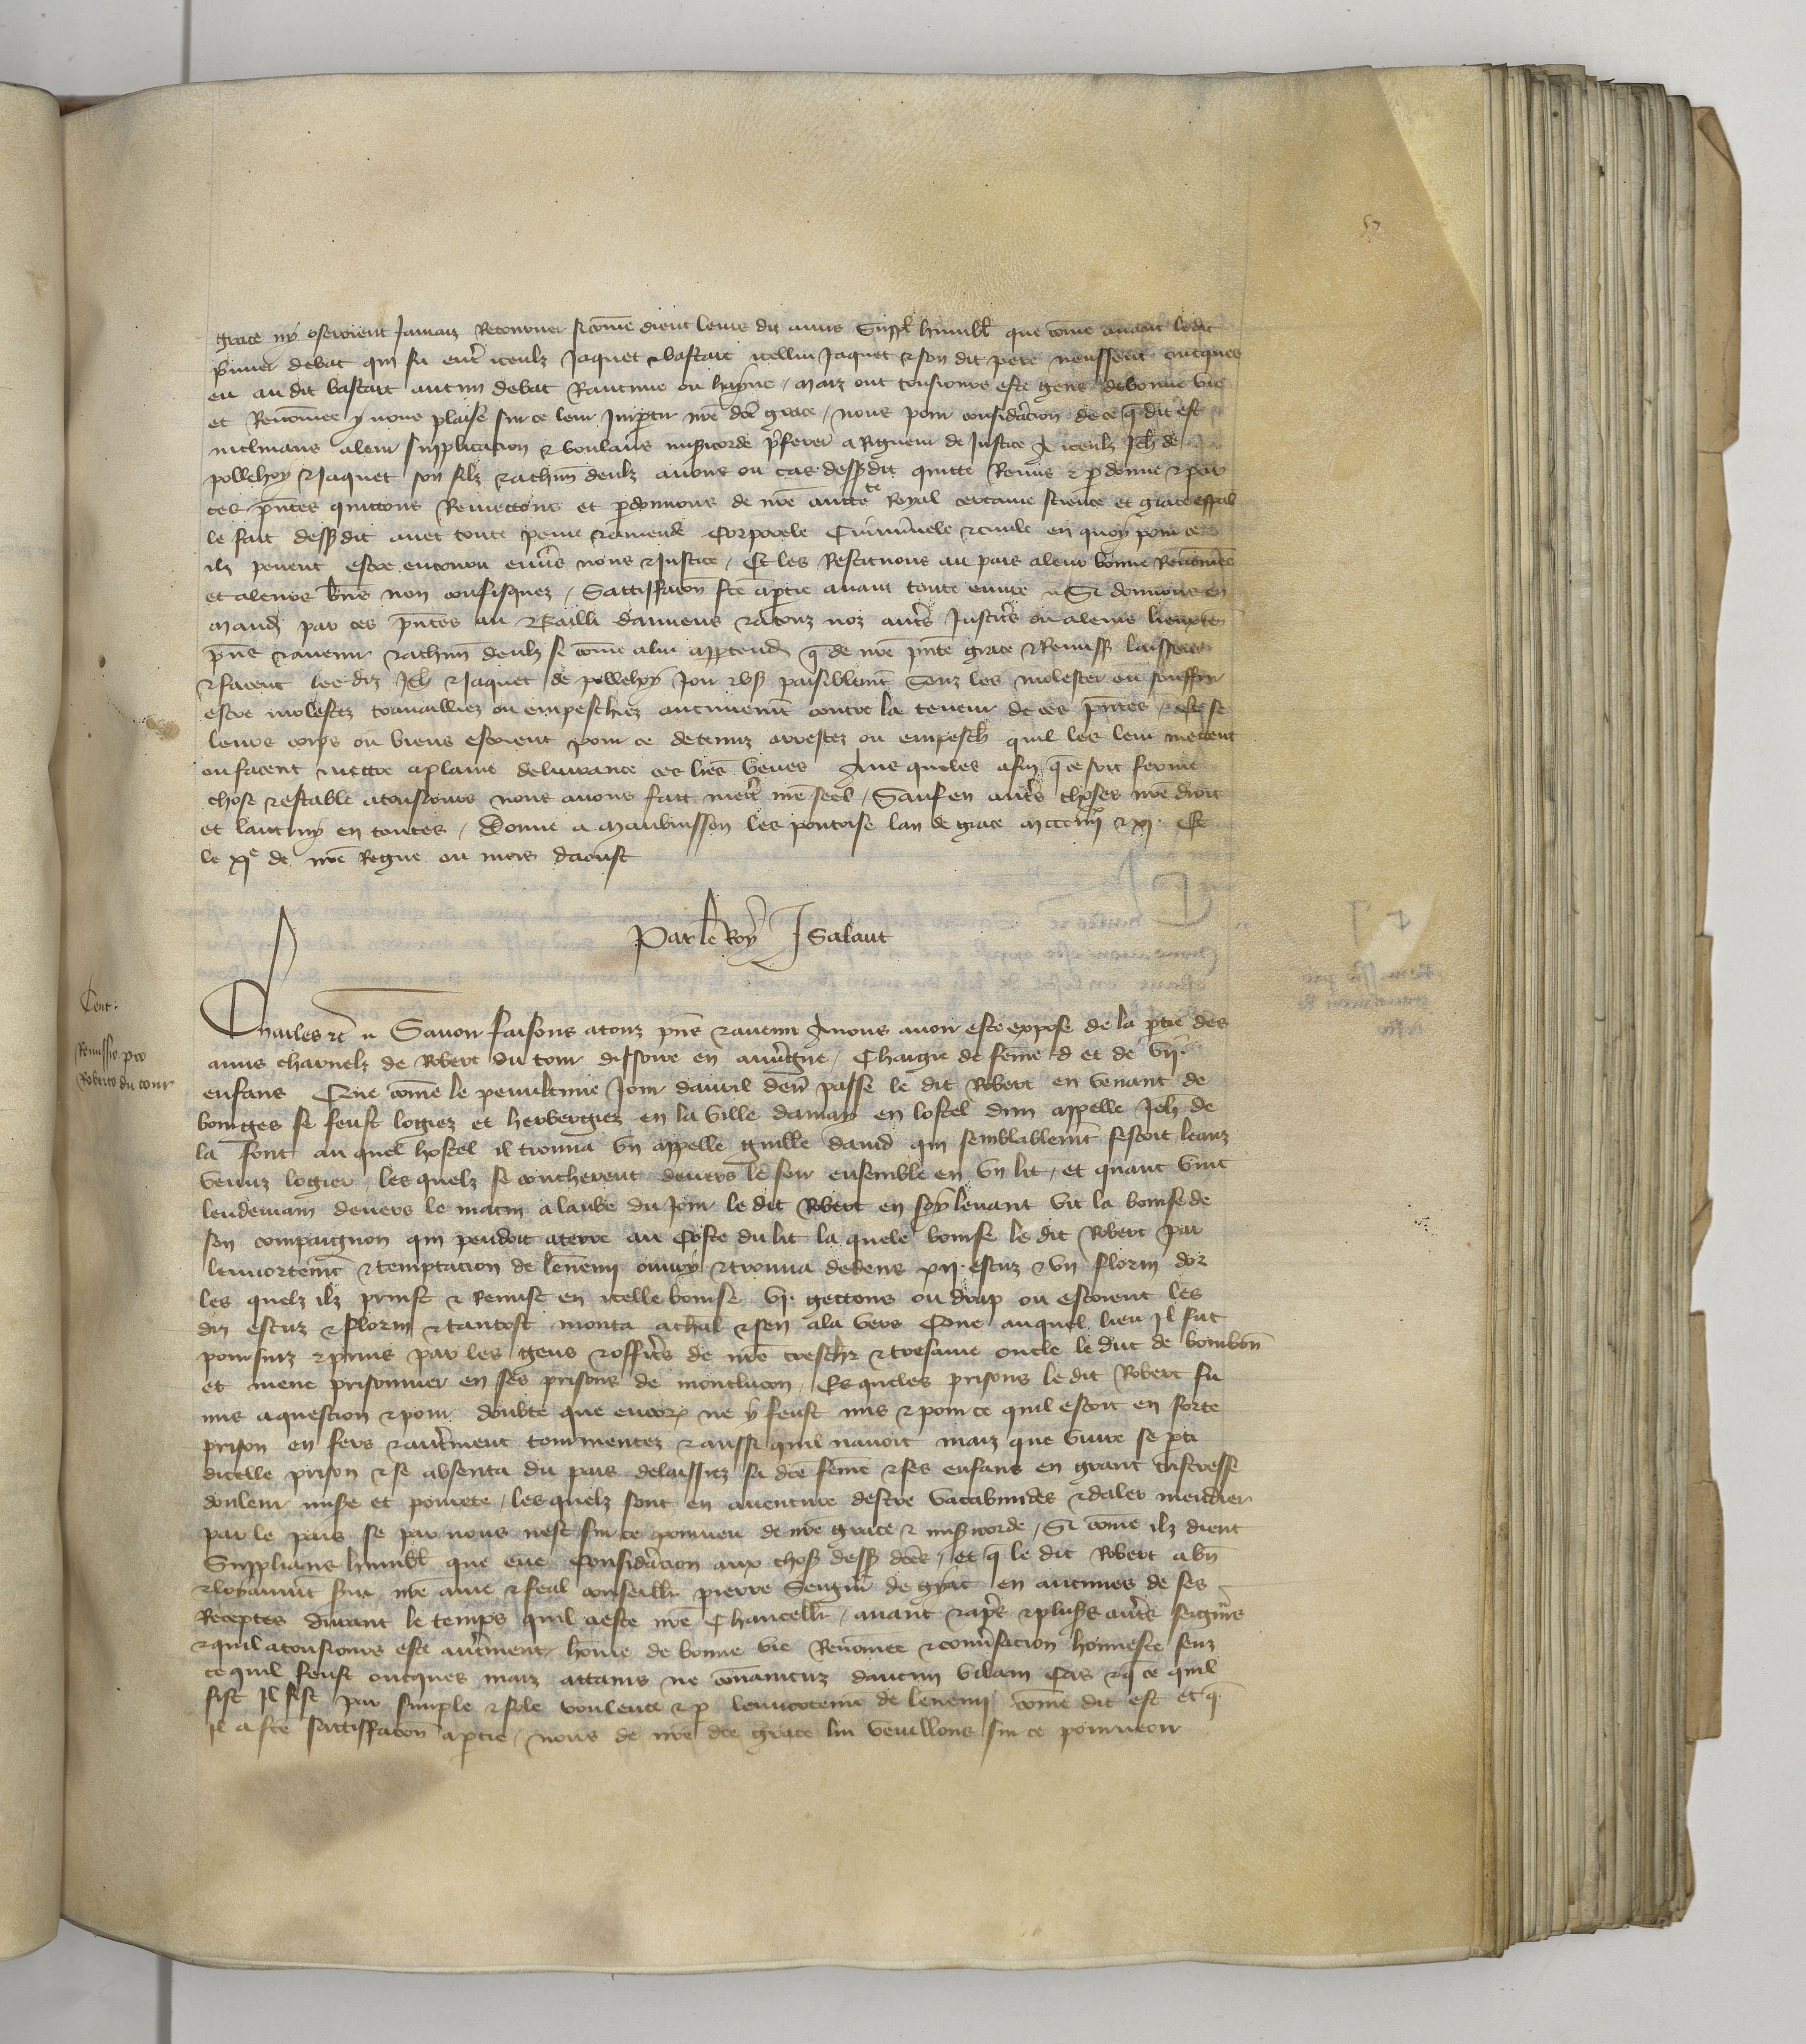 57
grace ny oseroient jamais Retourner si come dient leurs diz amis Suppl humbl que come avant ledit
p̃mier debat qui fu entr̃ iceulz Jaquet & bastart icellui Jaquet & son dit pere neussent oncques
eu au dit bastart aucun debat Rancune ou hayne / maiz ont tousiours este gens de bonne vie
et Renomee q̃ nous plaise sur ce leur Impartir nr̃e dc̃e grace / nous pour consideracion de ce q̃ dit est
inclinans a leur supplicacion & voulans misericorde p̃ferer a Rigueur de Justice A iceulz Jeh̃ de
pollehoy & Jaquet son filz & a chũn deulz avons ou cas dessusdit quitte Remis & p̱donne & par
ces p̃ntes quittons Remettons et p̱donnons de nr̃e auctte Royal certaine science et grace esp̃al
le fait dessusdit avec toute peine & amende Corporele Criminele & civile en quoy pour ce
ilz pevent estre encouru env̾s nous & Justice / Et les Restituons au pais a leur bonne Renomee
et a leurs biẽs non confisquez / Sattisfacõn fc̃e a p̱tie avant toute euvre Si donnons en
mand̃ par ces p̃ntes au Bailli damiens & a touz noz autr̃s Justic̃rs ou a leurs lieuxten̾
p̃ns & avenir & a chũn deulz si come a lui app̱tend̃ q̃ de nr̃e p̃nte grace & Remiss̃ laissent
& facent les diz Jeh̃ & Jaquet de pollehoy Joir & us̾ paisiblem̃t Sanz les molester ou souffrir
estre molestez travailliez ou empeschiez aucunem̃t contre la teneur de ces p̃ntes / et se
leurs corps ou biens estoient pour ce detenuz arrestez ou empesch̃ quil les leur mettent
ou facent mettre a plaine delivrance ces lr̃es veues Aus queles afin q̃ ce soit ferme
chose & estable a tousiours nous avons fait mettr̃ nr̃e seel / Sauf en autr̃s choses nr̃e droit
et lautruy en toutes / Donne a Maubuisson les pontoise lan de grace M CCC iiijxx & xj. Et
le xje de nr̃e Regne ou mois daoust
Par le Roy J Salaut
Cent:
Remissio pro
Roberto du tour
Charles &c̃ Savoir faisons a touz p̃ns & avenir A nous avoir este expose de la p̱tie des
amis charnelz de Robert du tour dissoire en auv̾gne / Chargie de feme et de vij.
enfans Que come le penultime Jour davril derr̃ passe le dit Robert en venant de
bourges se feust logiez et herbergiez en la ville dainay en lostel dun appelle Jeh̃ de
la font au quel hostel il trouva un appelle guill̃e david qui semblablem̃t sestoit leanz
venuz logier / les quelz se coucherent devers le soir ensemble en un lit / et quant vint
lendemain devers le matin a laube du Jour le dit Robert en soy levant vit la bourse de
son compaignon qui pendoit a terre au coste du lit la quele bourse le dit Robert par
lennortem̃t & temptacion de lennemi ouvry & trouva dedens xij. escuz & un florin dor
les quelz ilz prinst & Remist en icelle bourse vj. gettons ou drap ou estoient les
diz escuz & florin & tantost monta a chal & sen ala vers Cone auquel lieu Il fut
poursuiz & prins par les gens & offic̃rs de nr̃e tresch̾r & tresame oncle le duc de bourbõn
et mene prisonnier en ses prisons de montlucon / Es queles prisons le dit Robert fu
mis a question & pour doubte que encor̃ ne y feust mis & pour ce quil estoit en forte
prison en fers & autr̃ment tourmentez & aussi quil navoit maiz que vivre se p̱ti
dicelle prison & se absenta du pais delaissiez sa dc̃e feme & ses enfans en grant tristresse
douleur mis̾e et povrete / les quelz sont en aventure destre vacabundes & daler mendier
par le pais se par nous nest sur ce pourveu de nr̃e grace & mis̾icorde / Si come ilz dient
Supplians humbl̃ que eue consideracion aux chos̾ dess̾ dc̃es / et q̃ le dit Robert a bñ
& loyaum̃t s̾vi nr̃e ame & feal conseill̾r pierre Seign̾r de gyac en aucunes de ses
Receptes durant le temps quil a este nr̃e Chancell̾r / avant & apr̃s & plus̾s autr̃s seign̾rs
& quil a tousiours este autr̃ment home de bonne vie Renomee & conv̾sacion honneste senz
ce quil feust oncques maiz attains ne convaincuz daucun vilain Cas & q̃ ce quil
fist Il fist par simple & fole voulente & p̱ lennortem̃t de lennemi come dit est et q̃
il a fc̃e sattisfacõn a p̱tie / nous de nr̃e dc̃e grace lui veuillons sur ce pourveoir